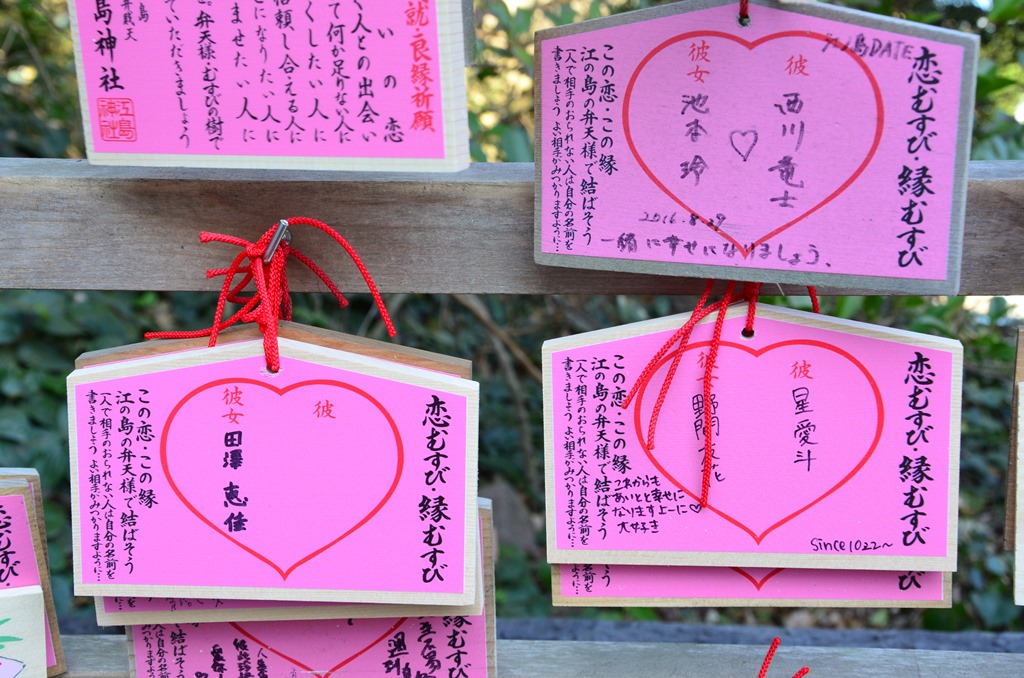 就・良縁祈願
いの恋
く人との出会い
て何か足りない人に
くしたい人に
信頼し合える人に
こになりたい人に
ませたい人に
。弁天様・むすびの街で
ていただきましょう
島神社
江島神社
江ノ島DATE
恋むすび・縁むすび
彼
西川竜士
彼女
池本玲
2016.8.29
一緒に幸せになりましょう、
この恋・この縁
江の島の弁天様で結ばそう
一人で相手のおられない人は自分の名前を
書きましょう よい相手がみつかりますように…
恋むすび・縁むすび
彼
彼女
田澤 恵佳
この恋・この縁
江の島の弁天様で結ばそう
一人で相手のおられない人は自分の名前を
書きましょう よい相手がみつかりますように…
恋むすび・縁むすび
彼
星愛斗
彼女
野間
花
この恋・この縁
江の島の弁天様で結ばそう
一人で相手のおられない人は自分の名前を
書きましょう よい相手がみつかりますように…
これからも
あいとと幸せに
なりますよーに♡
大好き
Since1022~
恋むすび・
縁むすび